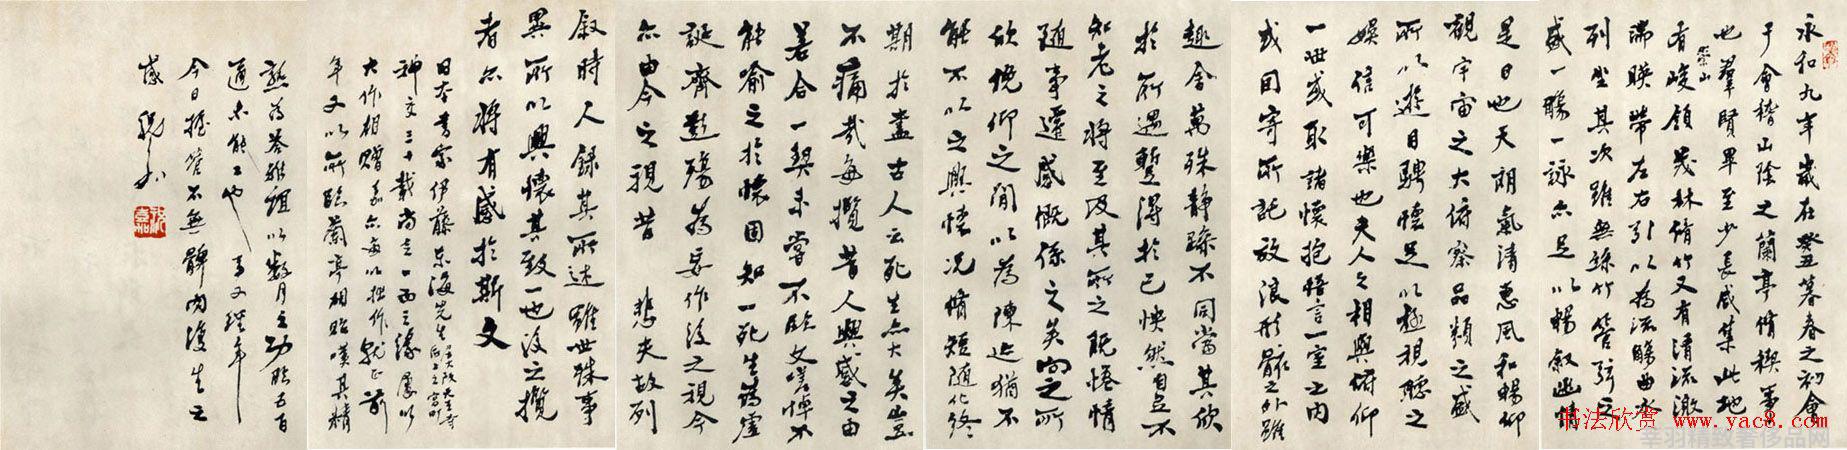 永和九年歲在癸丑暮春之初會
于會稽山陰之蘭亭脩禊事
也羣賢畢至少長咸集此地
崇山
有峻領茂林脩竹又有清流激
湍暎帶左右引以為流觴曲水
列坐其次雖無絲竹管弦之
盛一觴一詠亦足以暢敘幽情
是日也天朗氣清惠風和暢仰
觀宇宙之大俯察品類之盛
所以遊目騁懷足以極視聽之
娛信可樂也夫人之相與俯仰
一世或取諸懷抱悟言一室之內
或因寄所託放浪形骸之外雖
趣舍萬殊靜躁不同當其欣
於所遇蹔得於己怏然自足不
知老之將至及其所之既惓情
隨事遷感慨係之矣向之所
欣俛仰之閒以為陳迹猶不
能不以之興懷況脩短隨化終
期於盡古人云死生亦大矣豈
不痛哉每攬昔人興感之由
若合一契未嘗不臨文嗟悼不
能喻之於懷固知一死生為虛
誕齊彭殤為妄作後之視今
亦由今之視昔 悲夫故列
敘時人錄其所述雖世殊事
異所以興懷其致一也後之攬
者亦將有感於斯文
日本書家伊藤東海先生
神交三十載尚乏一面之緣屢以
大作相贈亦每以拙作就正前
年又以所臨蘭亭相貽嘆其精
熟為答雅誼以數月之功臨五百
通未能工也
今日握管不無髀肉復生之
感
书法欣赏 www.yac8.com
辛羽精致奢侈品网